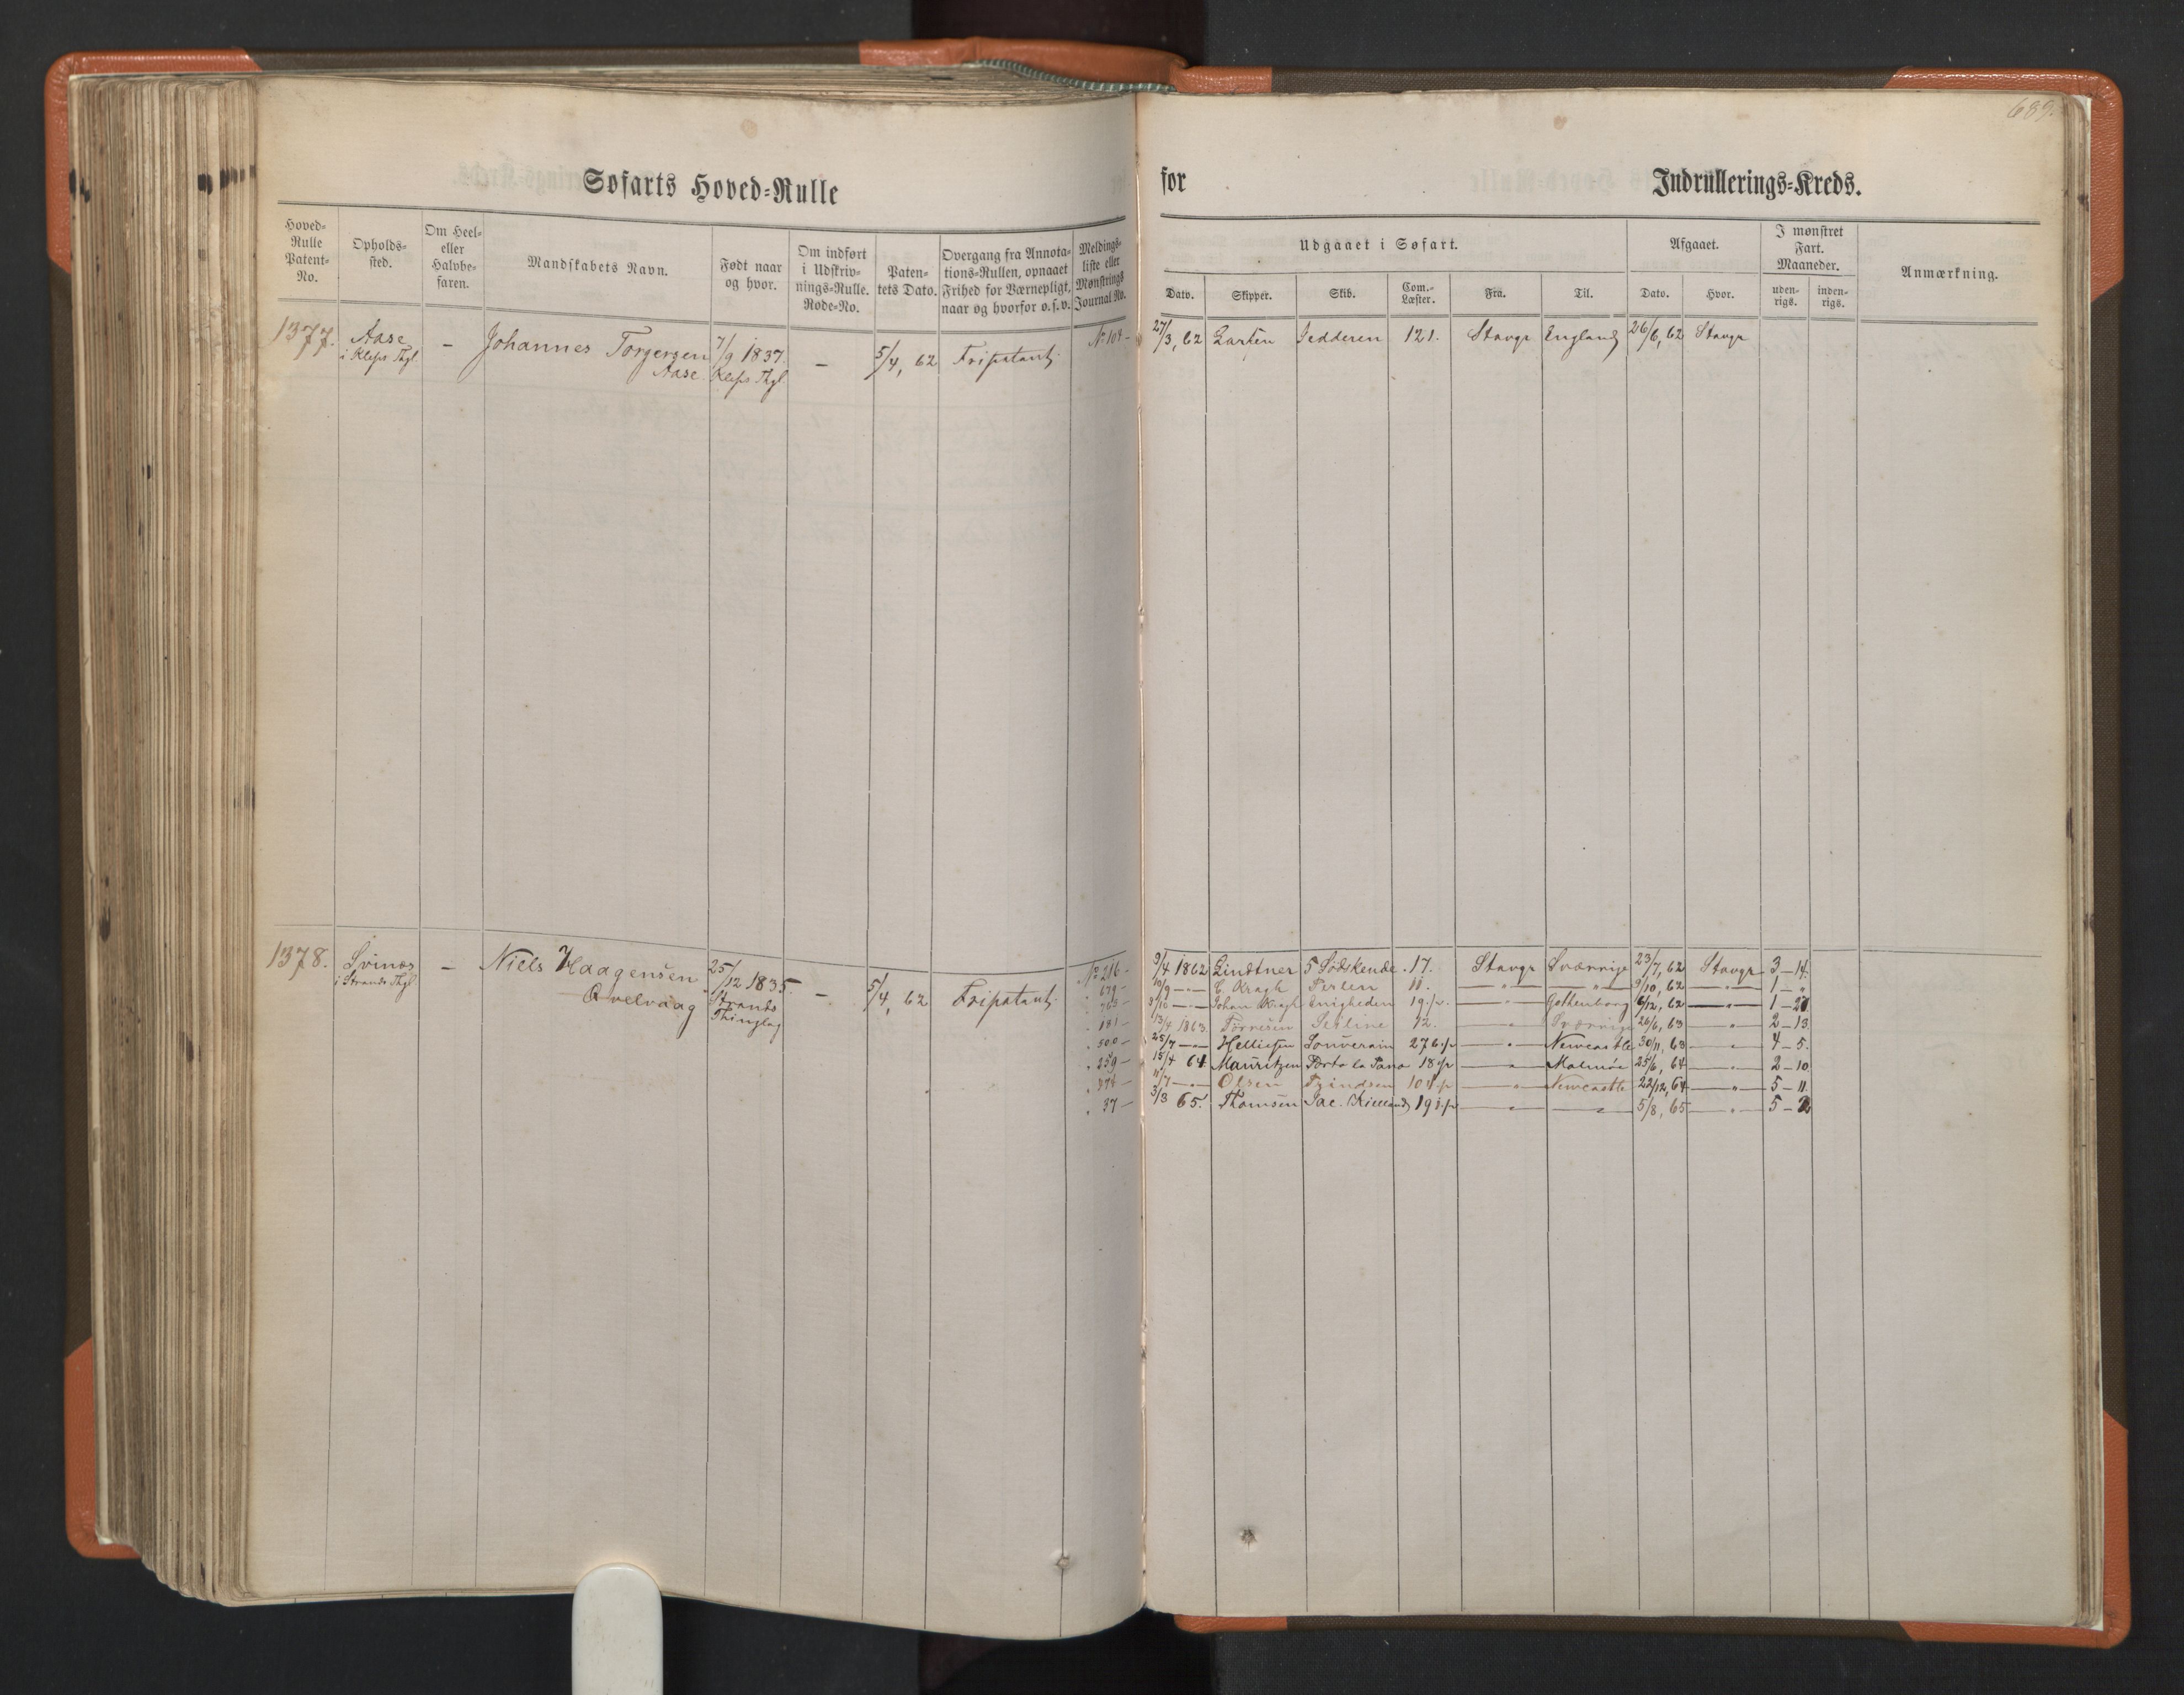 689.
Søfarts Hoved=Rulle
for Indrullerings=Kreds.
Hoved-Rulle Patent-No.
Opholds-sted.
Om Heel- eller Halvbe-faren.
Mandskabets Navn.
Født naar og hvor.
Om indført i Udskriv-nings-Rulle. Rode-No.
Paten-tets Dato.
Overgang fra Annota-tions-Rullen, opnaaet Frihed for Værnepligt, naar og hvorfor o.s.v.
Meldings-liste eller Mønstrings Journal No.
Udgaaet i Søfart.
Afgaaet.
I mønstret Fart. Maaneder.
Anmærkning.
Dato. Skipper. Skib. Com.-Læster. Fra. Til. Dato. Hvor. uden-rigs. inden-rigs.
1377. Aase — Johannes Torgersen 7/9 1837. — 5/4, 62 Fripatent No 104 — 27/3, 62 Larsen Jedderen 121. Stavgr England 26/6, 62 Stavgr
i Kleps Thgl Aase. Kleps Thgl
1378. Svinæs — Niels Haagensen 25/12 1835. — 5/4, 62 Fripatent No 216 — 9/4 1862 Lindtner 5 Sødskende 17. Stavgr Sværrige 23/7, 62 Stavgr 3 — 14.
i Strands Thgl Qvelvaag Strands Thinglag
" 679 — 10/9 — " — C. Kragh Perlen 11. — " — — " — 9/10, 62 — " — 1 — "
" 763 — — " — Johan Kragh Enigheden 19 1/2. — " — Gothenborg 6/12, 62 — " — 1 —
" 181 — 13/4 1863. Tørresen 12. — " — Sværrige 26/6, 63 " 2 — 13.
" 500 — 25/7 — " — Helliesen Souverain 276 1/2 — " — Newcastle 30/11, 63 " 4 — 5.
" 259 — 15/4 64. Mauritzen 18 1/2 — " — Malmöe 25/6, 64 — " — 2 — 10.
" — 11/7 — " — Olsen 104 1/2 — " — Newcastle 22/12, 64 — " — 5 — 11.
" 37 — 3/3 65. Thomsen Jac. Kielland 191 1/2 — " — — " — 5/8, 65 — " — 5 — 2